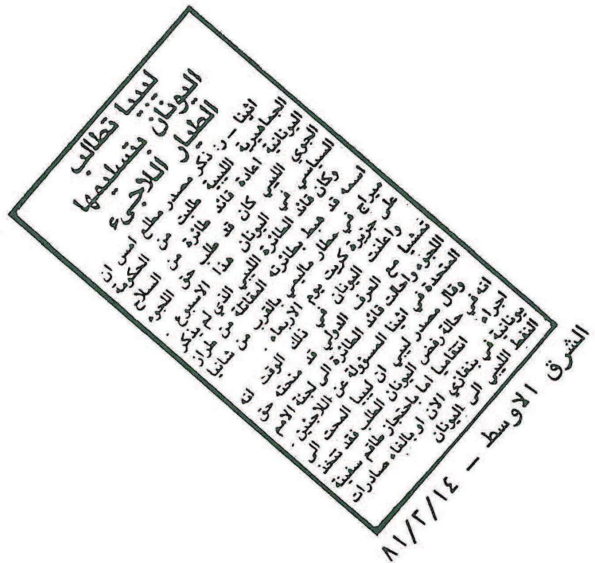 ليبيا تطالب
اليونان بتسليمها
الطيار اللاجىء
اثينا - ن: ذكر مصدر مطلع امس ان
الجماهيرية الليبية طلبت من الحكومة
اليونانية اعادة قائد طائرة من السلاح
الجوي الليبي كان قد طلب حق اللجوء
السياسي في اليونان هذا الاسبوع.
وكان قائد الطائرة الليبي الذي لم يذكر
اسمه قد هبط بطائرته المقاتلة من طراز
ميراج في مطار ماليمي بالقرب من شانيا
على جزيرة كريت يوم الاربعاء.
واعلنت اليونان في ذلك الوقت انه
تمشيا مع العرف الدولي قد منحته حق
اللجوء واحالت قائد الطائرة الى لجنة الامم
المتحدة في اثينا المسؤولة عن اللاجئين.
وقال مصدر ليبي ان ليبيا المحت الى
انه في حالة رفض اليونان الطلب فقد تتخذ
اجراء انتقاميا اما باحتجاز طاقم سفينة
يونانية في بنغازي الان او بالغاء صادرات
النفط الليبي الى اليونان
الشرق الاوسط - ٨١/٢/١٤